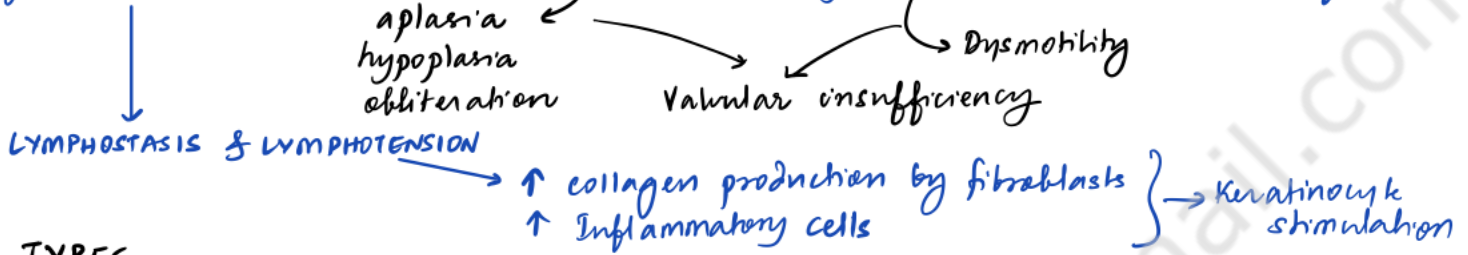 aplasia
hypoplasia
obliteration
Dysmotility
Valvular insufficiency
LYMPHOSTASIS & LYMPHOTENSION
↑ collagen production by fibroblasts
↑ Inflammatory cells
Keratinocyte
stimulation
TYPES
ail.com